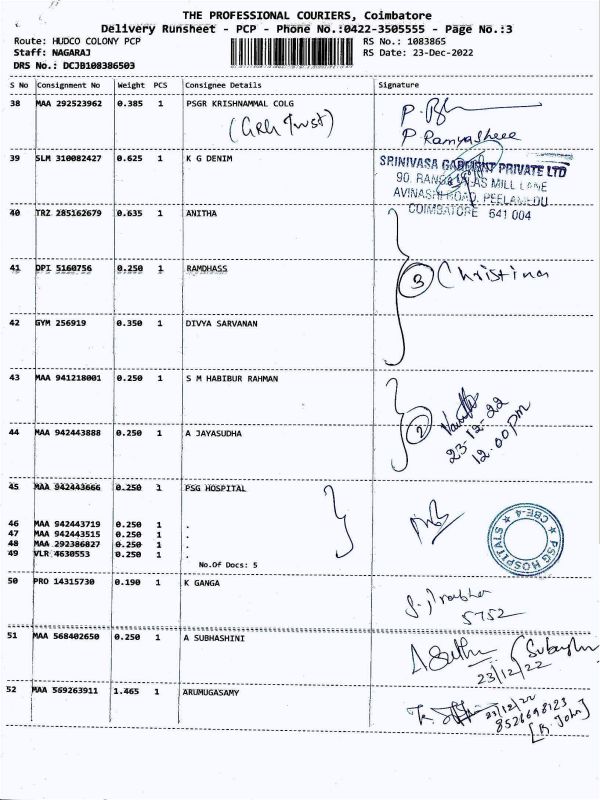 THE PROFESSIONAL COURIERS, Coimbatore
Delivery Runsheet - PCP - Phone No.:0422-3505555 - Page No.:3
Route: HUDCO COLONY PCP RS No.: 1083865
Staff: NAGARAJ RS Date: 23-Dec-2022
DRS No.: DCJB108386503
S No Consignment No Weight PCS Consignee Details Signature
38 MAA 292523962 0.385 1 PSGR KRISHNAMMAL COLG
(GRG Trust)
P Ramyashree
39 SLM 310082427 0.625 1 K G DENIM
SRINIVASA GARMENT PRIVATE LTD
90, RANGA VILAS MILL LANE
AVINASHI ROAD, PEELAMEDU
COIMBATORE 641 004
40 TRZ 285162679 0.635 1 ANITHA
41 DPI 5160756 0.250 1 RAMDHASS
3 Christina
42 GYM 256919 0.350 1 DIVYA SARVANAN
43 MAA 941218001 0.250 1 S M HABIBUR RAHMAN
2
23-12-22
12.00pm
44 MAA 942443888 0.250 1 A JAYASUDHA
45 MAA 942443666 0.250 1 PSG HOSPITAL
46 MAA 942443719 0.250 1 .
47 MAA 942443515 0.250 1 .
48 MAA 292386827 0.250 1 .
49 VLR 4630553 0.250 1 .
No.Of Docs: 5
PSG HOSPITALS CBE-4
50 PRO 14315730 0.190 1 K GANGA
5752
51 MAA 568402650 0.250 1 A SUBHASHINI
23/12/22
52 MAA 569263911 1.465 1 ARUMUGASAMY
23/12/22
8526698123
[B. John]